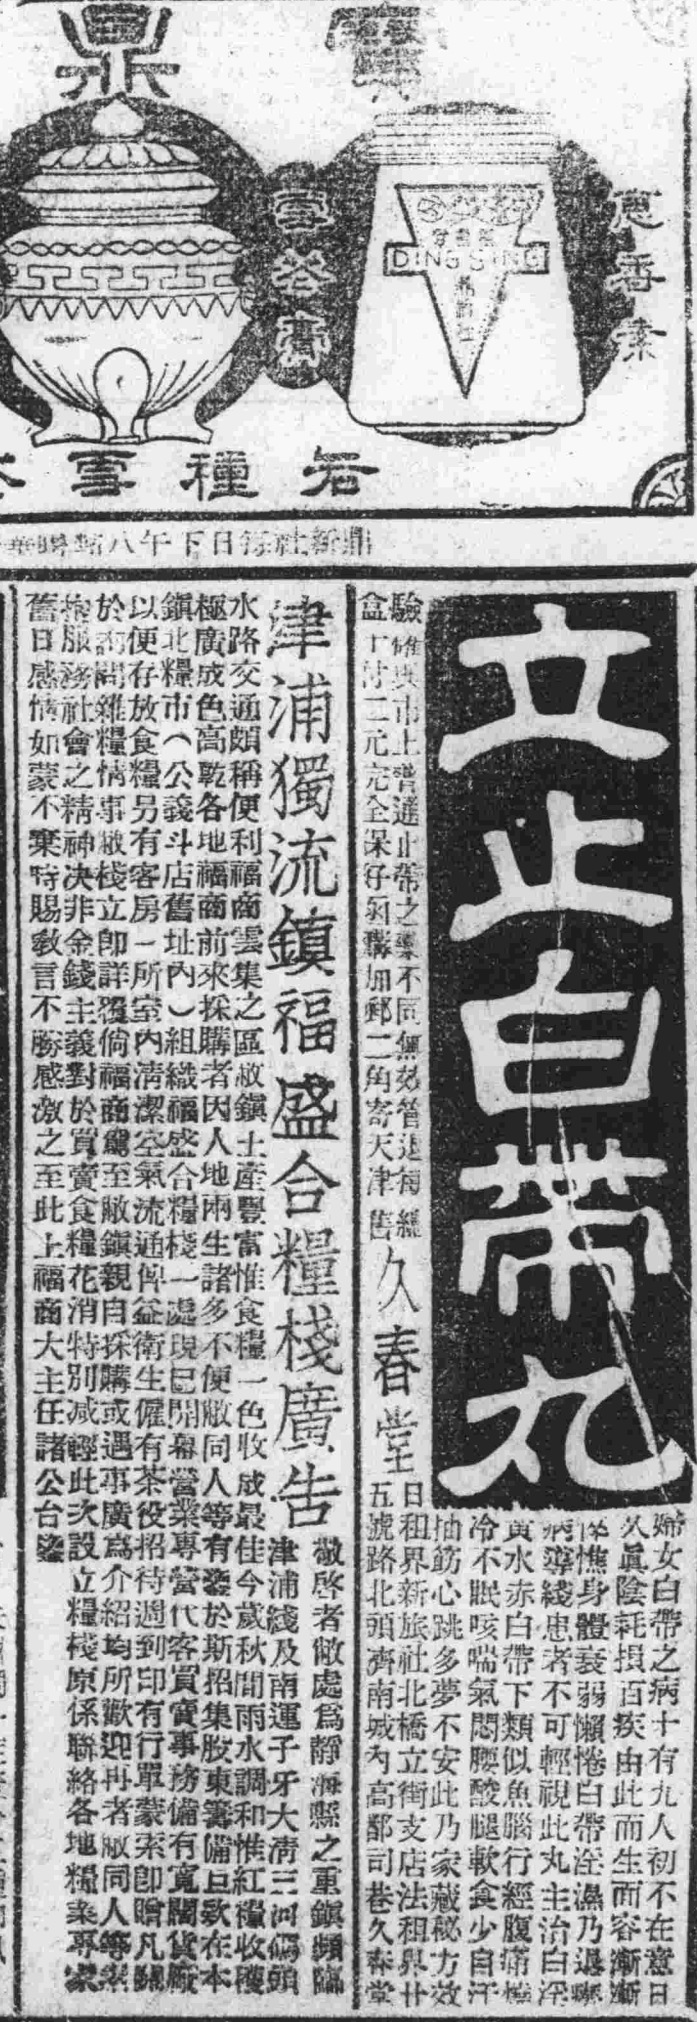 寶鼎
惠香素
雪花膏
DING SING
鼎新社
各種雪花
鼎新社每日下午八時
立止白帶丸
婦女白帶之病十有九人初不在意日
久眞陰耗損百疾由此而生而容漸漸
憔身體衰弱懶惓白帶淫濕乃退
病導綫患者不可輕視此丸主治白淫
黃水赤白帶下類似魚腦行經腹痛
冷不眠咳喘氣悶腰酸腿軟食少自汗
抽筋心跳多夢不安此乃家藏秘方效
驗確與市上普通止帶之藥不同無效管退每
盒十付二元完全保好外購加郵二角寄天津售
久春堂
日租界新旅社北橋立街支店法租界廿
五號路北頭濟南城內高都司巷久春堂
津浦獨流鎮福盛合糧棧廣告
敬啓者敝處爲靜海縣之重鎮頻臨
津浦綫及南運子牙大淸三河碼頭
水路交通頗稱便利福商雲集之區敝鎮土產豐富惟食糧一色收成最佳今歲秋間雨水調和惟紅糧收穫
極廣成色高乾各地福商前來採購者因人地兩生諸多不便敝同人等有鑒於斯招集股東籌備巨欵在本
鎮北糧市（公義斗店舊址內）組織福盛合糧棧一處現已開幕營業專營代客買賣事務備有寬闊貨廠
以便存放食糧另有客房一所室內淸潔空氣流通俾益衛生僱有茶役招待週到印有行單蒙索卽贈凡關
於詢問雜糧情事敝棧立卽詳覆倘福商駕至敝鎮親自採購或遇事廣爲介紹均所歡迎再者敝同人等素
抱服務社會之精神决非金錢主義對於買賣食糧花消特別减輕此次設立糧棧原係聯絡各地糧業專家
舊日感情如蒙不棄特賜敎言不勝感激之至此上福商大主任諸公台鑒